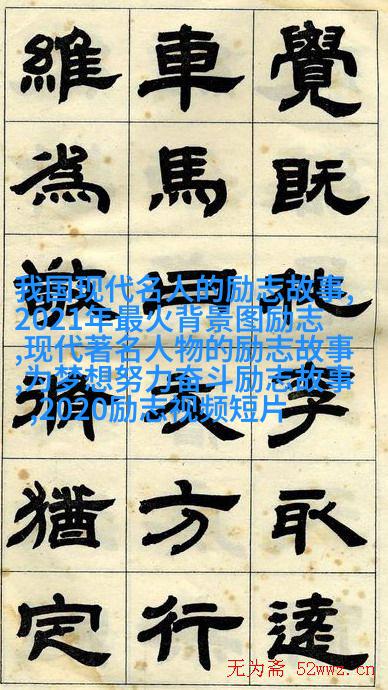 覺既李取
車馬表方行
維為猶定
我国现代名人的励志故事,
2021年最火背景图励志
,现代著名人物的励志故事
,为梦想努力奋斗励志故事
,2020励志视频短片
无为斋 52wwz.cn